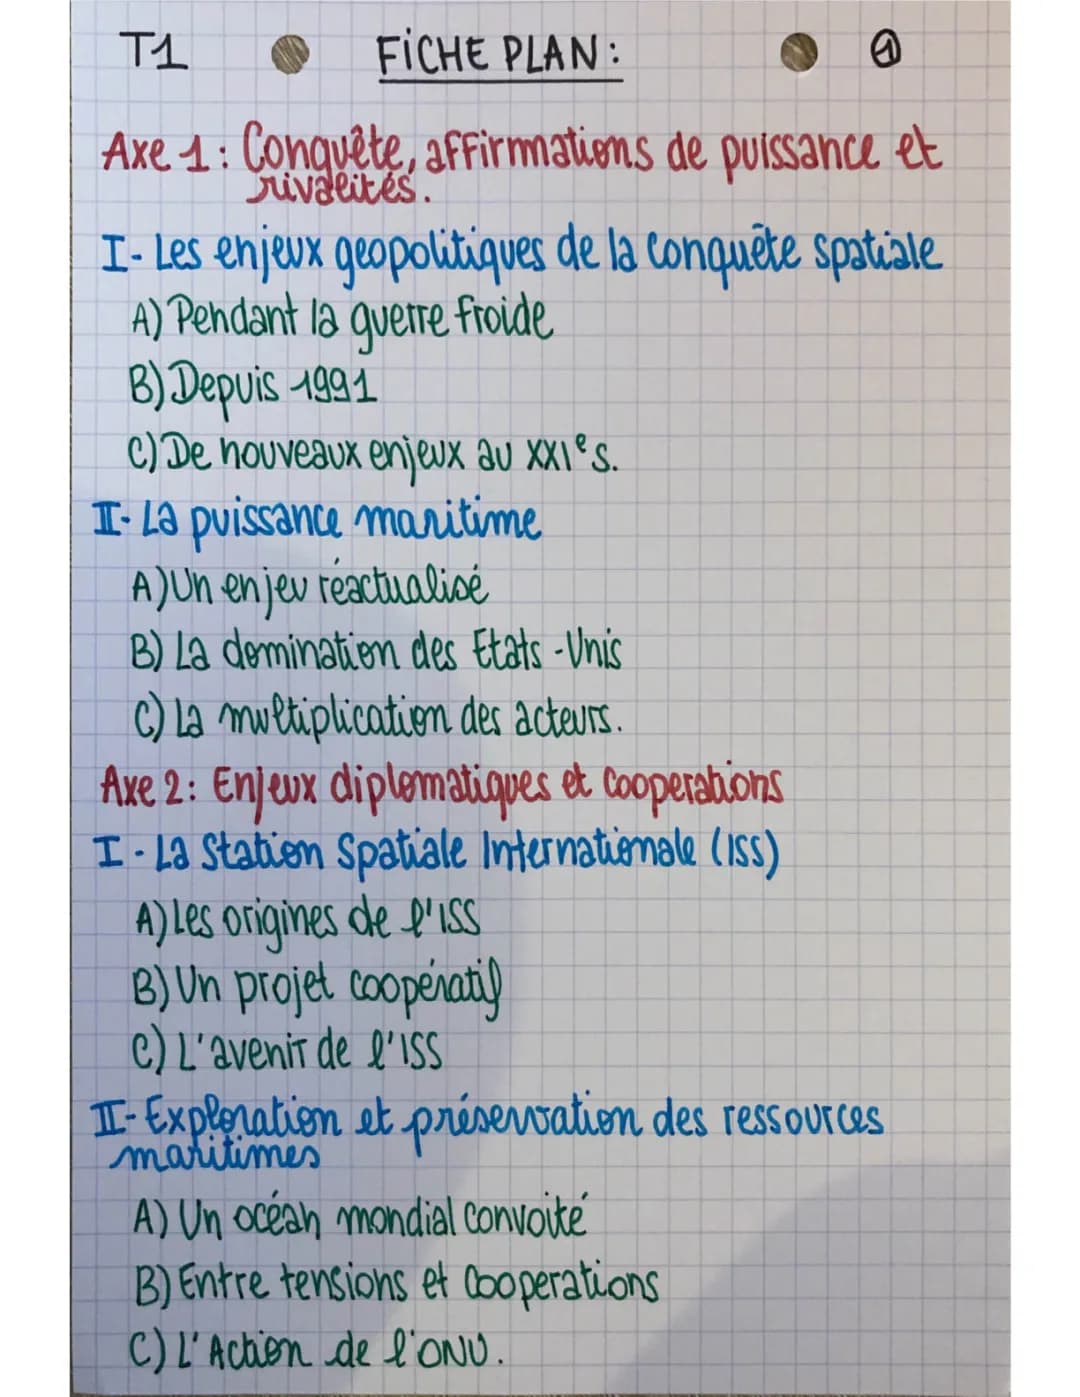 T1 FICHE PLAN: 1
Axe 1: Conquête, affirmations de puissance et
rivalités.
I- Les enjeux geopolitiques de la conquête spatiale
A) Pendant la guerre froide
B) Depuis 1991
C) De nouveaux enjeux au XXIe s.
II- La puissance maritime
A) Un enjeu réactualisé
B) La domination des Etats-Unis
C) La multiplication des acteurs.
Axe 2: Enjeux diplomatiques et cooperations
I- La Station Spatiale Internationale (ISS)
A) Les origines de l'ISS
B) Un projet coopératif
C) L'avenir de l'ISS
II- Exploration et préservation des ressources
maritimes
A) Un océan mondial convoité
B) Entre tensions et cooperations
C) L'Action de l'ONU.